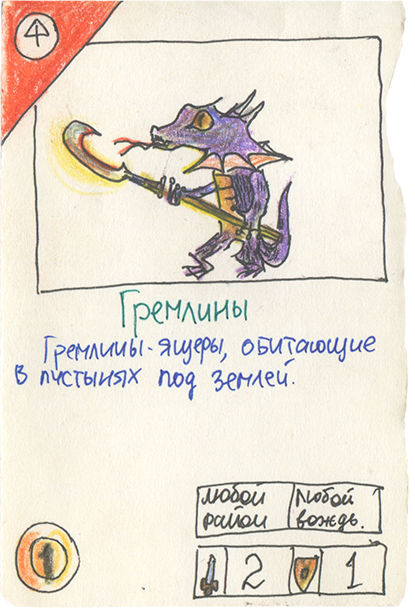 Гремлины
Гремлины-ящеры, обитающие
в пустынях под землей.
любой район
Любой вождь.
1
2
1